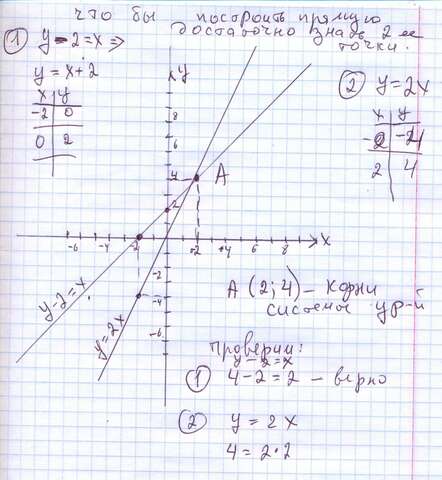 что бы построить прямую
достаточно знать 2 ее
точки.
① y - 2 = x ⇒
y = x + 2
x | y
-2 | 0
0 | 2
② y = 2x
x | y
-2 | -4
2 | 4
y
8
6
4
2
A
-6 -4 -2 +2 +4 6 8 x
-4
-6
y-2=x
y=2x
A (2; 4) – корни
системы ур-й
Проверим:
y - 2 = x
① 4 - 2 = 2 – верно
② y = 2x
4 = 2·2